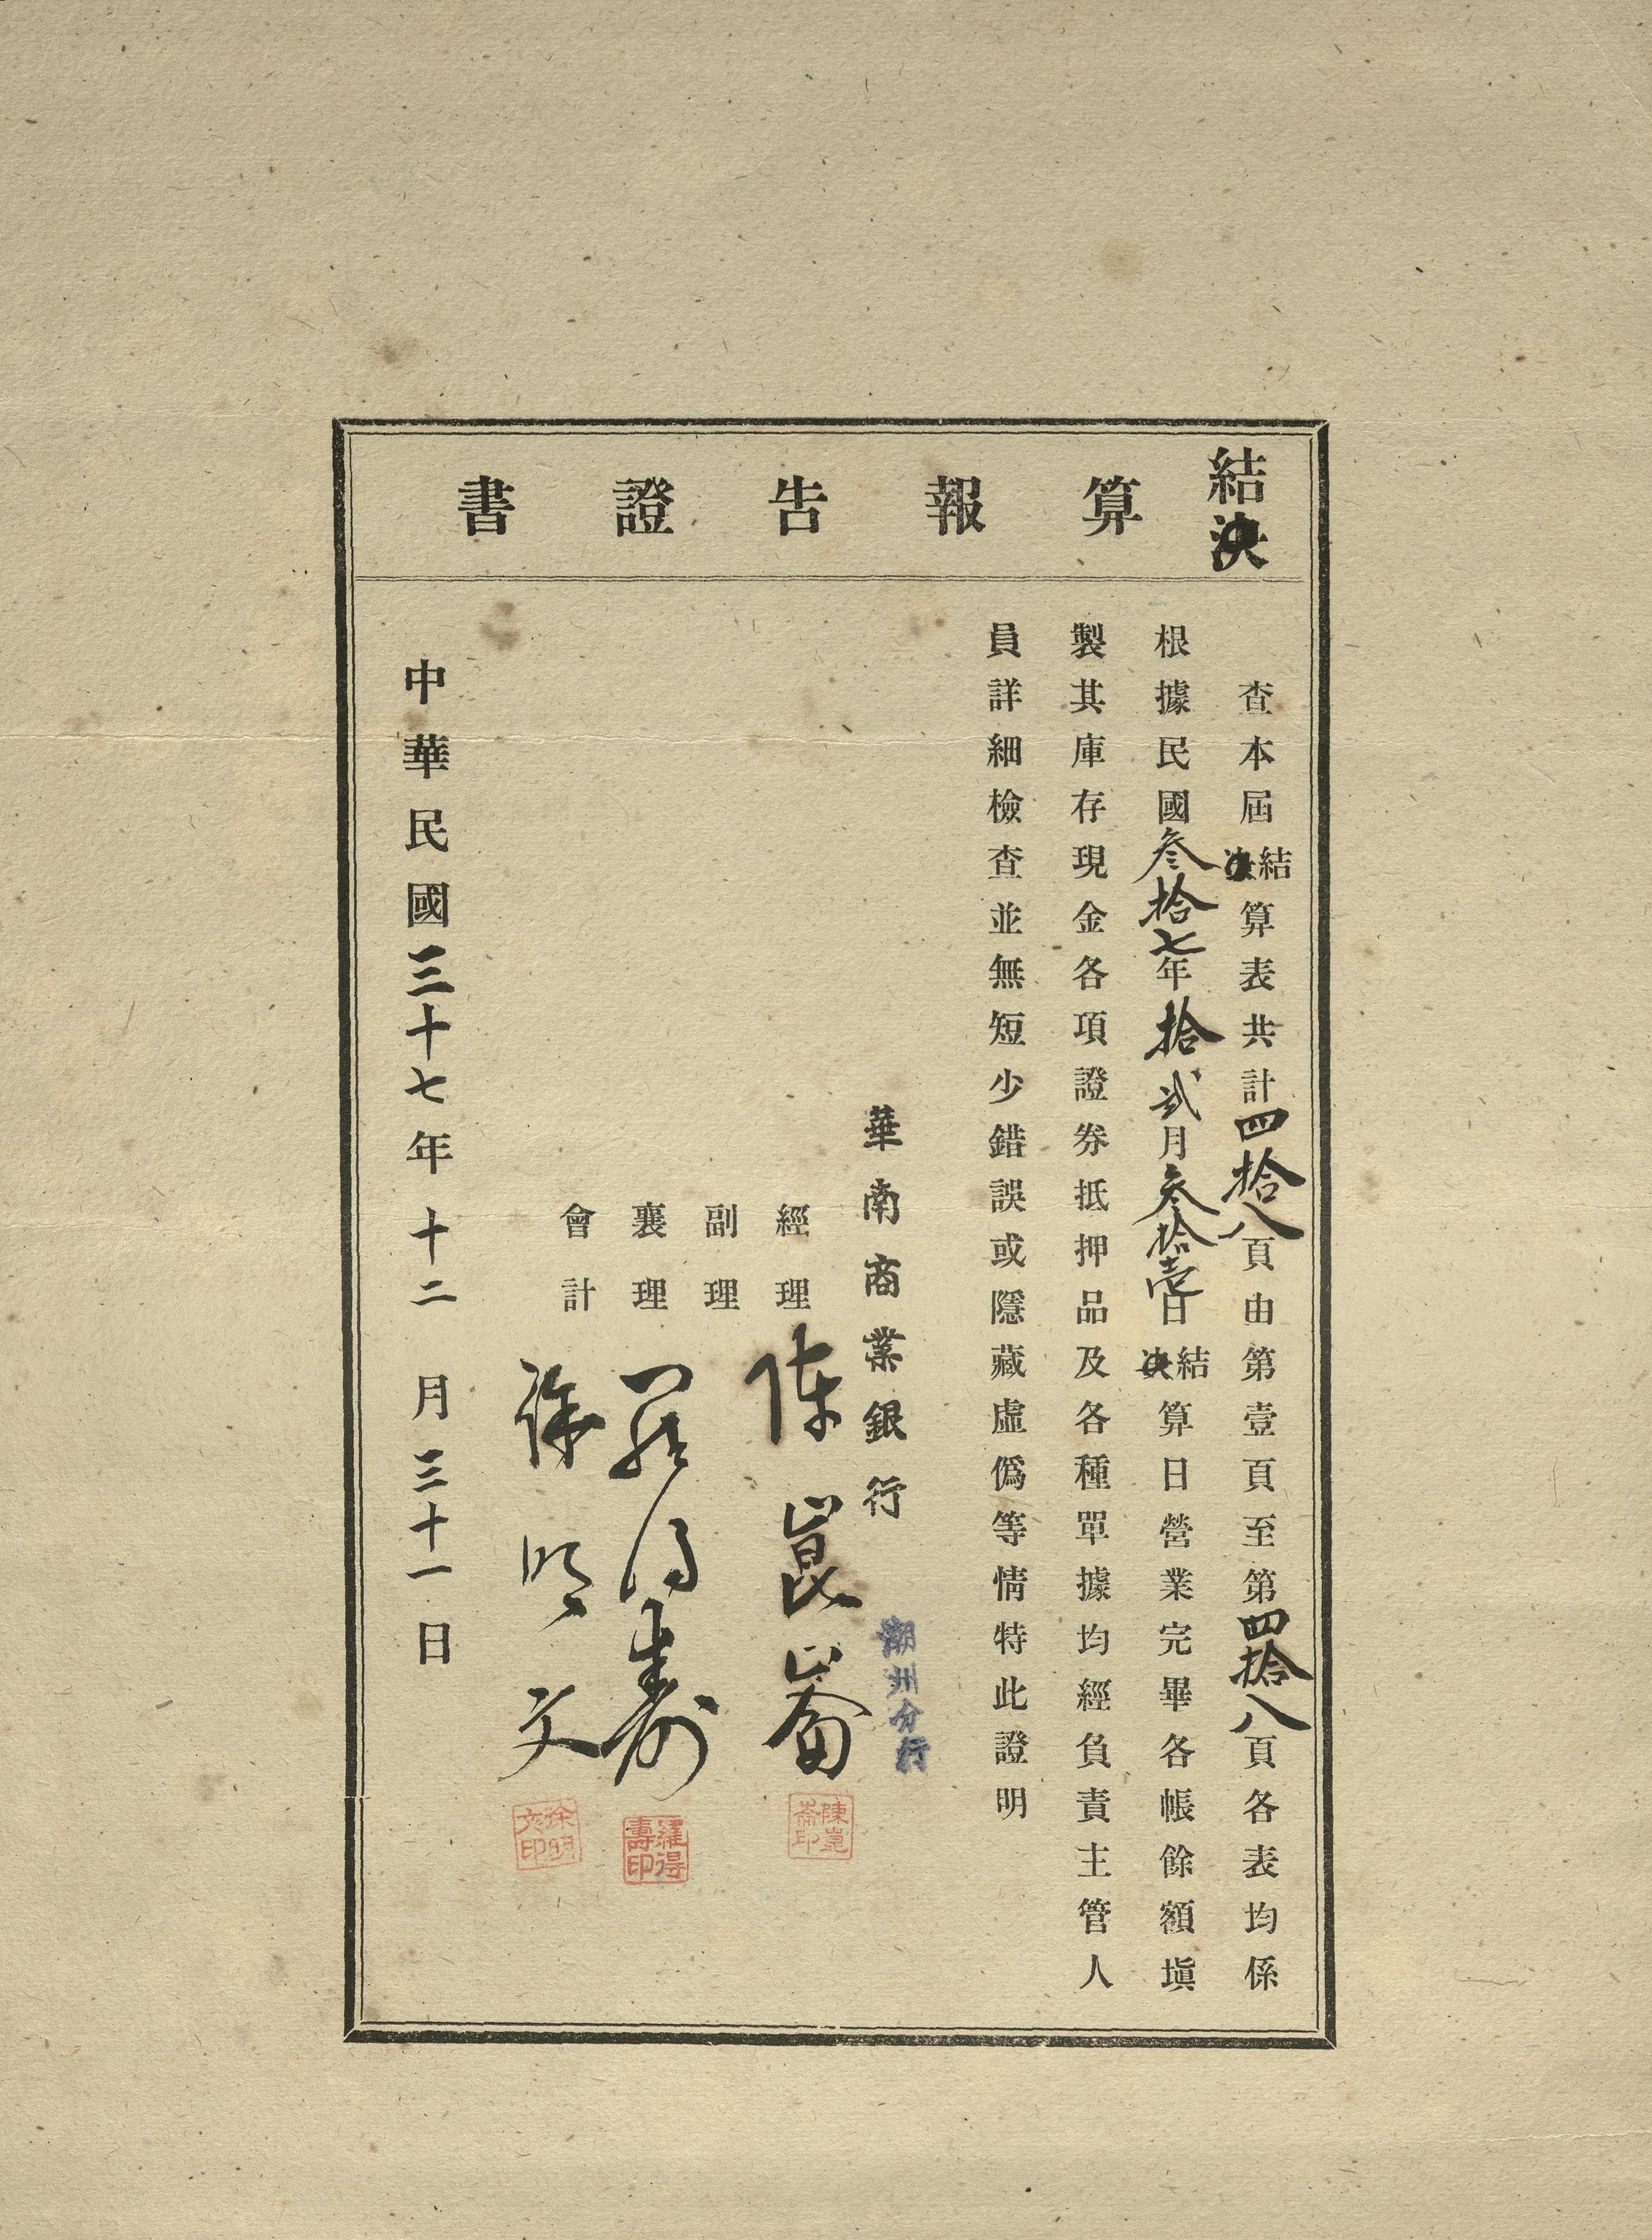 結決算報告證書
查本屆結決算表共計四拾八頁由第壹頁至第四拾八頁各表均係
根據民國叁拾七年拾弍月叁拾壹日結決算日營業完畢各帳餘額塡
製其庫存現金各項證券抵押品及各種單據均經負責主管人
員詳細檢查並無短少錯誤或隱藏虛僞等情特此證明
華南商業銀行潮州分行
經理 陳崑崙 陳崑崙印
副理
襄理 羅得壽 羅得壽印
會計 徐明文 徐明文印
中華民國三十七年十二月三十一日